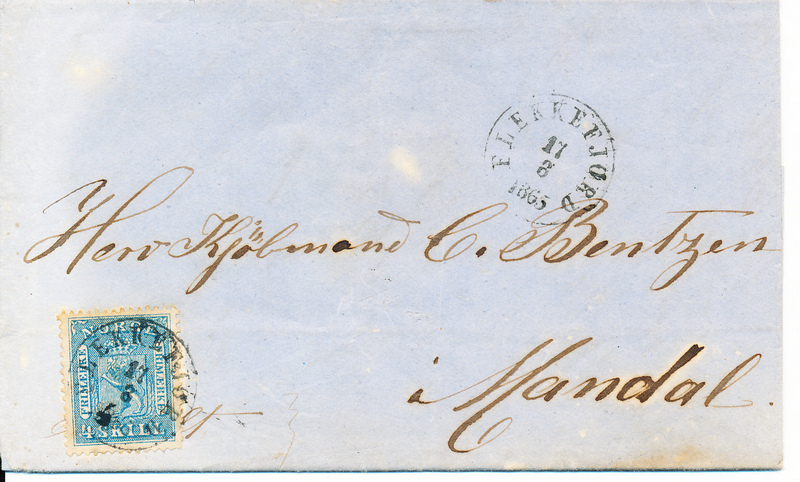 FLEKKEFJORD
17
8
1865
Herr Kjöbmand C. Bentzen
NORGE
FRIMERKE
FRIMERKE
4 SKILL.
à Mandal.